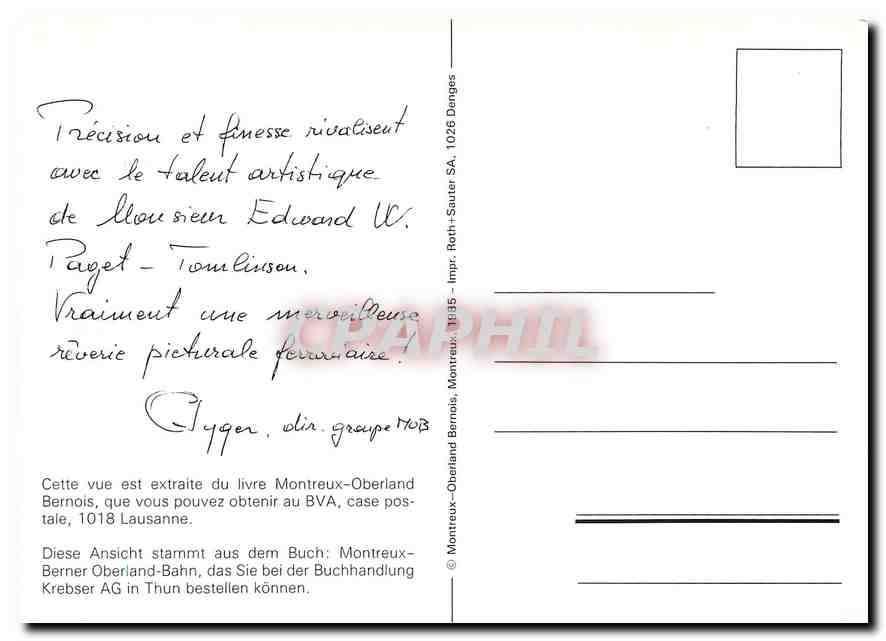 Précision et finesse rivalisent
avec le talent artistique
de Monsieur Edward W.
Paget - Tomlinson.
Vraiment une merveilleuse
rêverie picturale ferroviaire !
Gyger, dir. groupe MOB
Cette vue est extraite du livre Montreux–Oberland
Bernois, que vous pouvez obtenir au BVA, case pos-
tale, 1018 Lausanne.
Diese Ansicht stammt aus dem Buch: Montreux–
Berner Oberland-Bahn, das Sie bei der Buchhandlung
Krebser AG in Thun bestellen können.
© Montreux–Oberland Bernois, Montreux, 1985 – Impr. Roth+Sauter SA, 1026 Denges
CPAPHIL